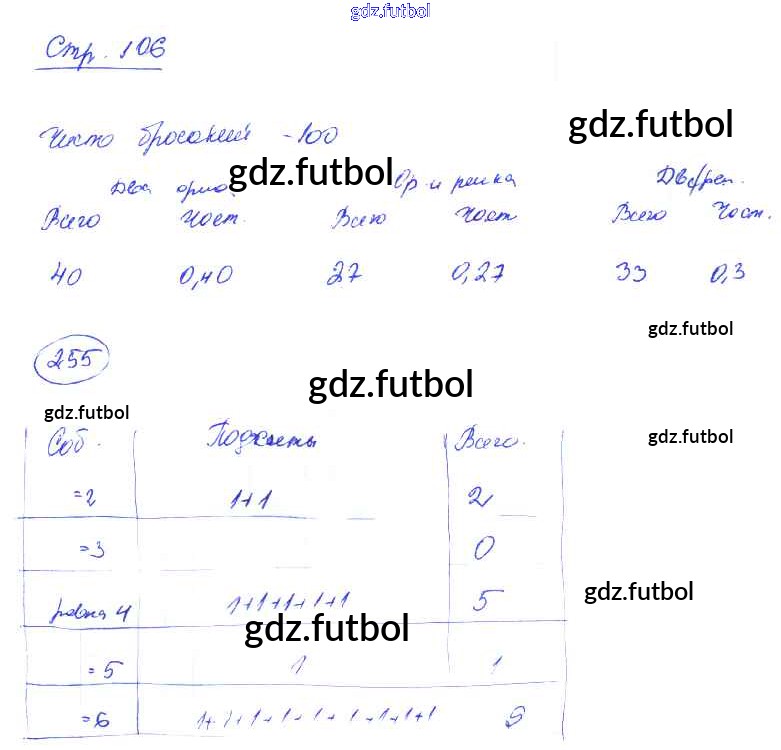 gdz.futbol
Стр. 106
Число бросаний - 100
gdz.futbol
Два орла Ор. и решка Дв. реш.
gdz.futbol
Всего Част. Всего Част Всего Част.
40 0,40 27 0,27 33 0,3
gdz.futbol
255
gdz.futbol
gdz.futbol
gdz.futbol
Соб. Подсчеты Всего.
=2 1+1 2
=3 0
gdz.futbol
равна 4 1+1+1+1+1 5
gdz.futbol
=5 1 1
=6 1+1+1+1+1+1+1+1+1 9